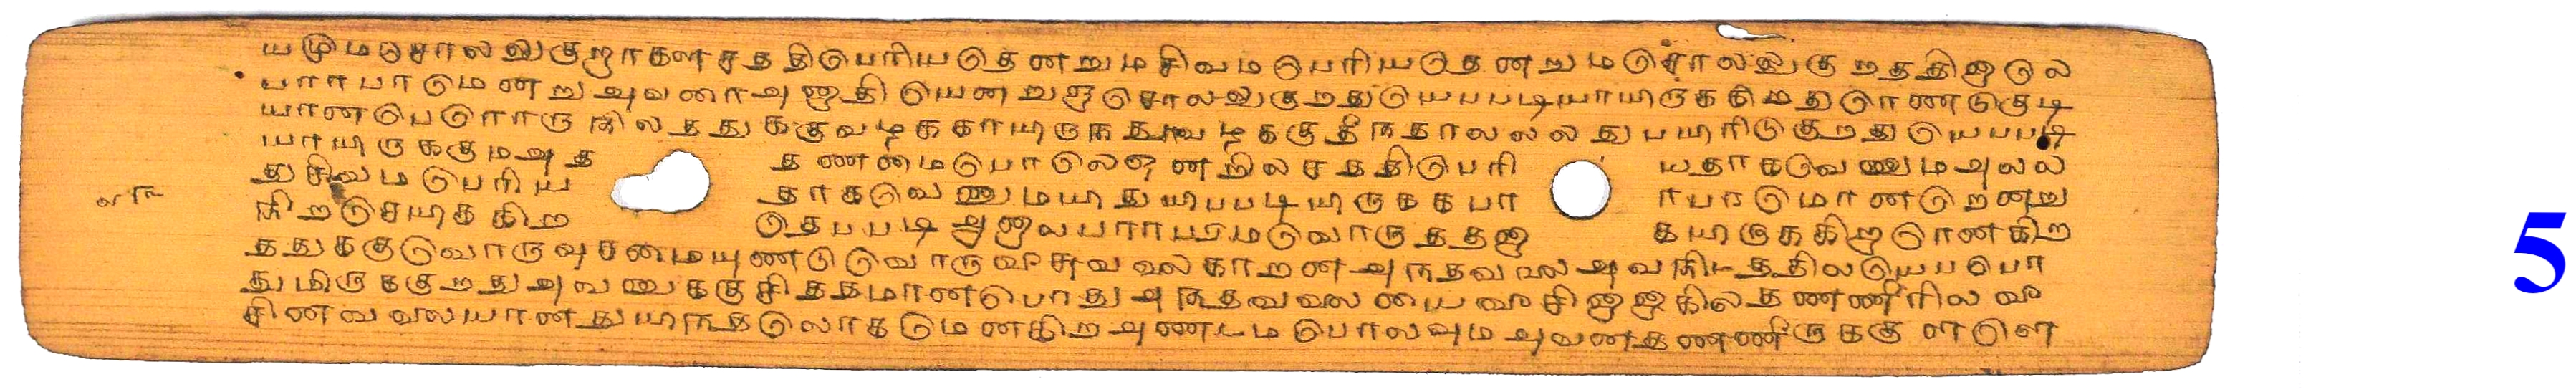 யமுமடுசாலலுகுறாகளசததிடுபரியடுதனறுமசிவமடுபரியடுதனறுமடுசாலலுகுறததினுடுல
பாராபாடுமனறுஅவனாஅனுதிடுயனறுஞடுசாலலுகுறதுடுயபபடியாயிருககிறதுடுாணடுகுடி
யானடுபடுாாருநிலததுககுவழககாயிருநதுவழககுதீநதாலலலதுபயிரிடுகுறதுடுயபபடி
யாயிருககுமஅத தணமைடுபாடுலஒனறிலசததிடுபரி யதாகடுவணுமஅலல
துசிவமடுபரிய தாகடுவணுமயிதுயிபபடியிருககபா ராபரடுமானடுறனறு
நிறடுசயிககிற டுதபபடிஅனுலபாராபரமடுவாருததனு கயிருககிறடுானகிற
ததுககுடுவாருவுசனமையுணடுடுவாருவிசுவவலகாறனஅநதவவலஅவனிடததிலடுயபபொ
துமிருககுறதுஅவனுககுசிததமானபொதுஅநதவவலயைவிசினுனுகிலதணணீரிலவி
சினவவலயானதுயிநதடுலாகடுமனகிறஅணடமடுபாலவுமஅவனதணணீருககுளடுள
வாி
5